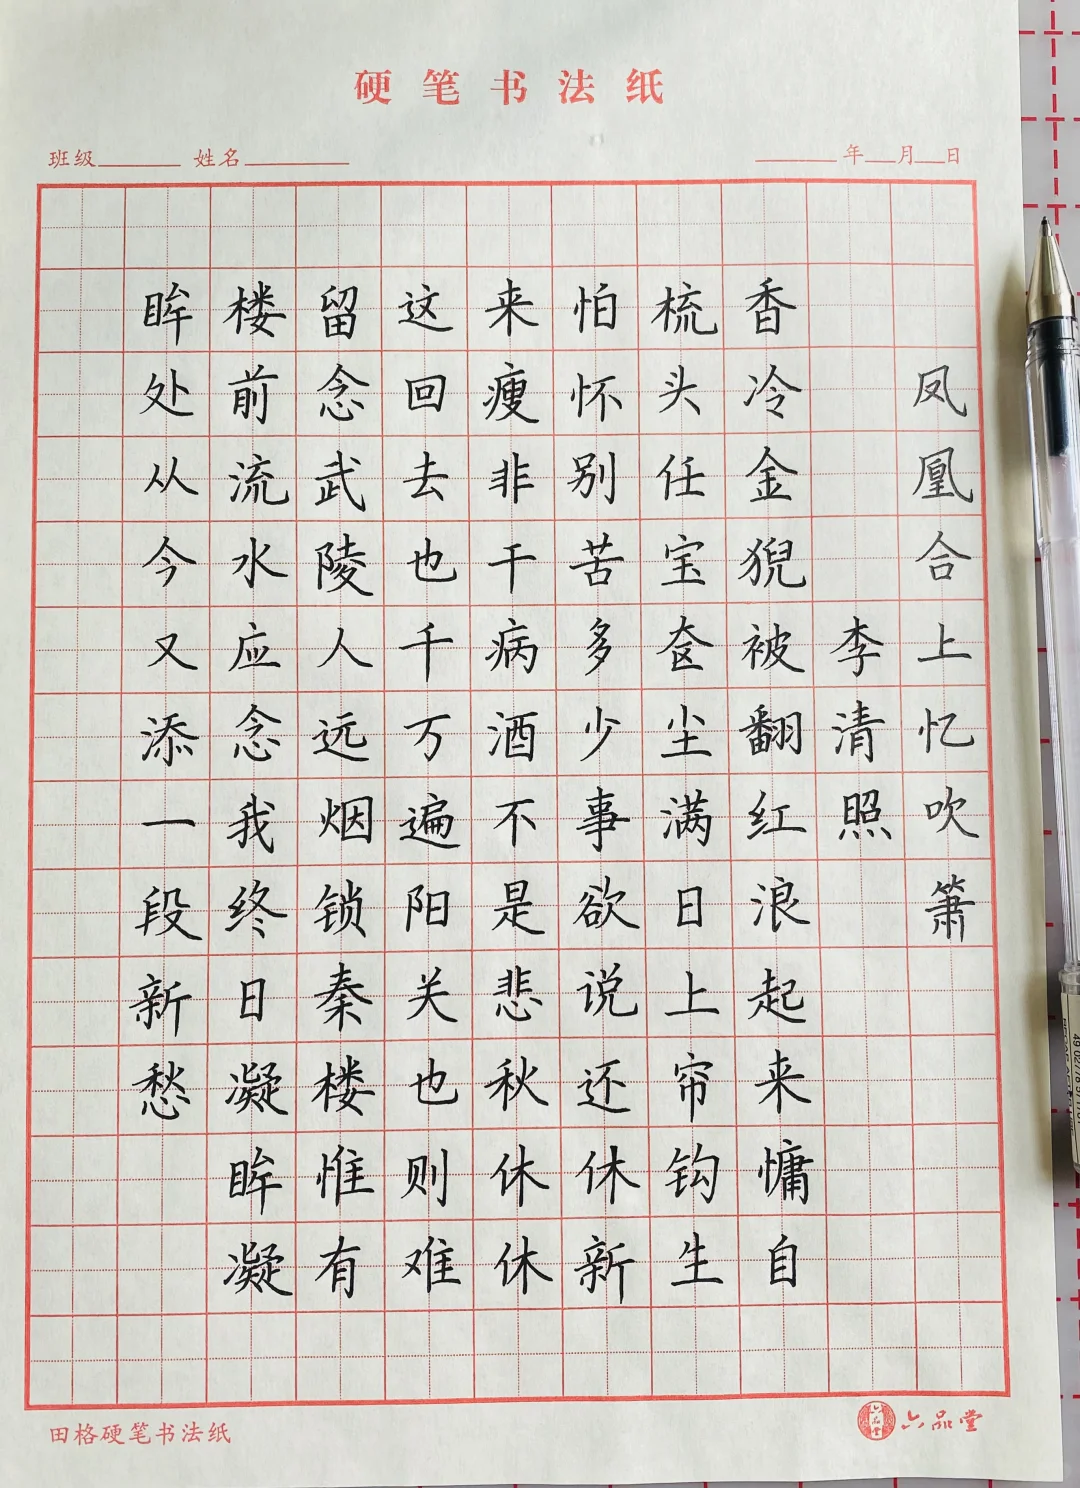 硬笔书法纸
班级 姓名 年 月 日
凤凰合上忆吹箫
李清照
香冷金猊被翻红浪起来慵自
梳头任宝奁尘满日上帘钩生
怕怀别苦多少事欲说还休新
来瘦非干病酒不是悲秋休休
这回去也千万遍阳关也则难
留念武陵人远烟锁秦楼惟有
楼前流水应念我终日凝眸凝
眸处从今又添一段新愁
田格硬笔书法纸
六品堂 六品堂